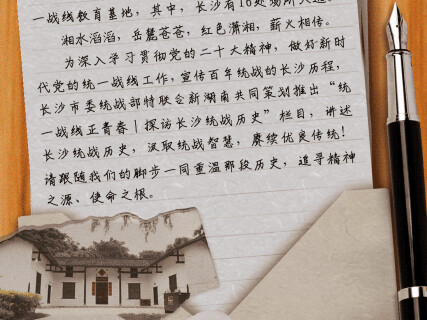 一战线教育基地，其中，长沙有16处场所入选。
湘水滔滔，岳麓苍苍，红色潇湘，薪火相传。
为深入学习贯彻党的二十大精神，做好新时
代党的统一战线工作，宣传百年统战的长沙历程，
长沙市委统战部特联合新湖南共同策划推出“统
一战线正青春｜探访长沙统战历史”栏目，讲述
长沙统战历史，汲取统战智慧，赓续优良传统！
请跟随我们的脚步一同重温那段历史，追寻精神
之源、使命之根。